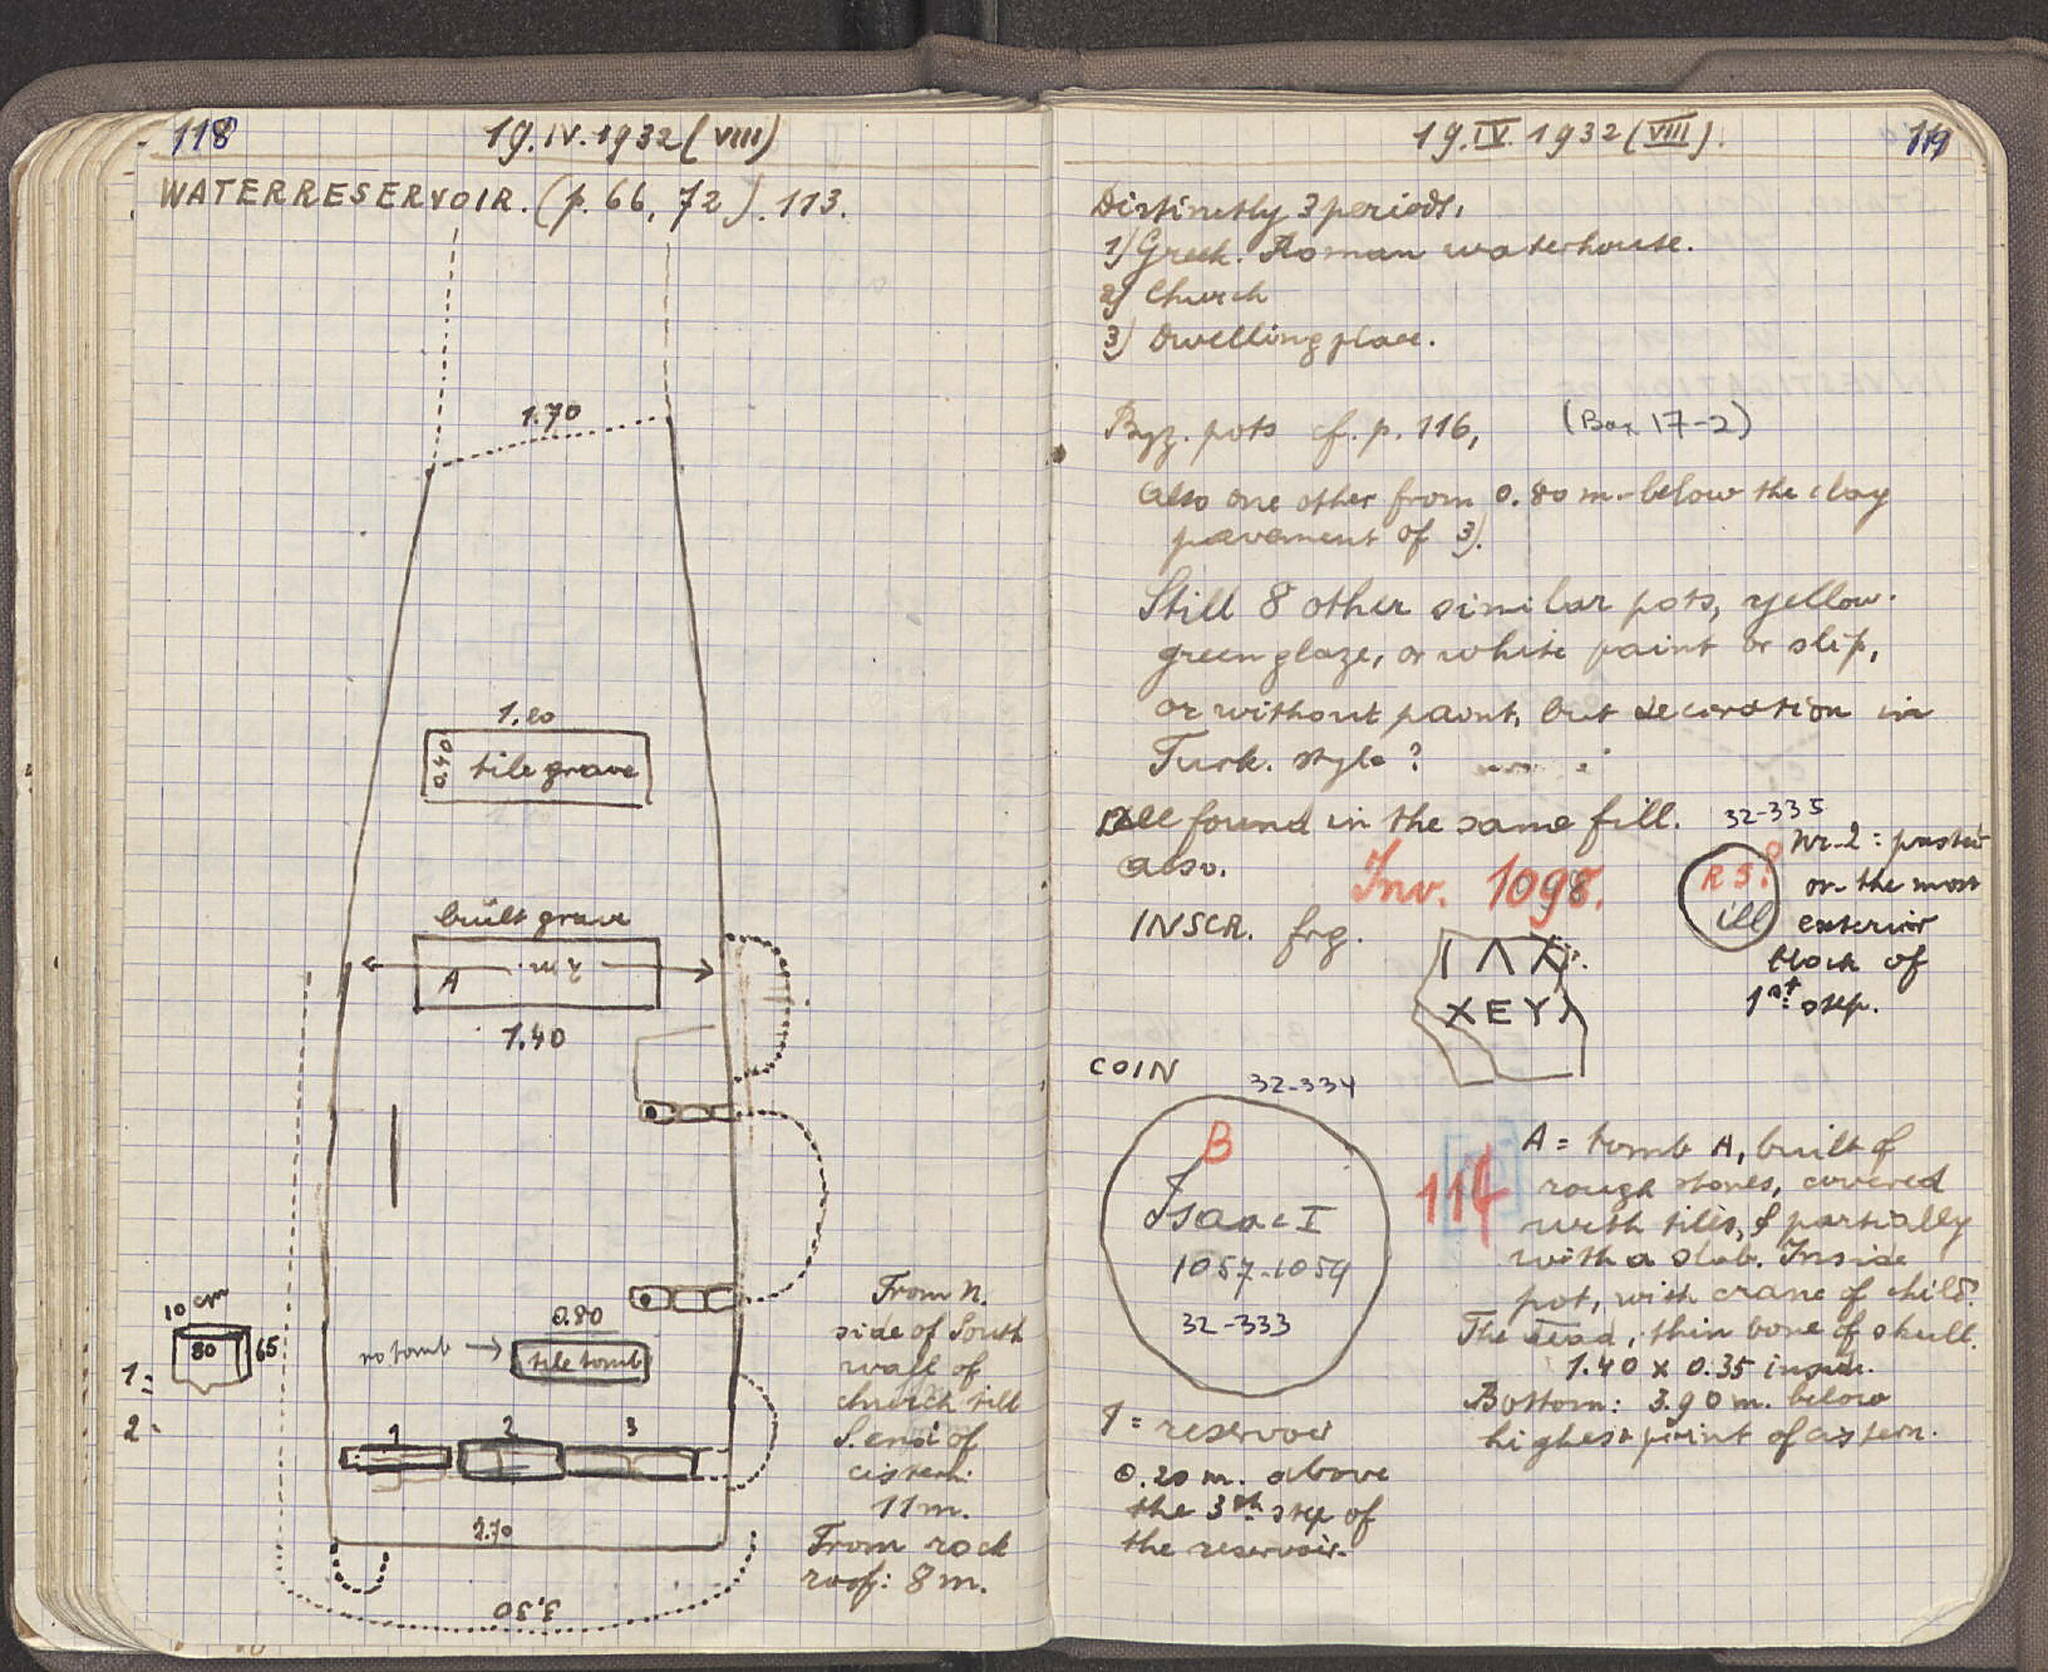 118
19.IV.1932 (VIII)
WATERRESERVOIR. (p. 66, 72). 113.
1.70
1.20
0.40
tile grave
built grave
A
2m
1.40
10 cm
80
65
1:
2:
0.80
no tomb → tile tomb
1 2 3
2.70
3.50
From N.
side of South
wall of
church till
S. end of
cistern:
11 m.
From rock
roof: 8 m.
19.IV.1932 (VIII).
119
Distinctly 3 periods.
1) Greek. Roman waterhouse.
2) Church
3) Dwellingplace.
Byz. pots cf. p. 116, (Box 17-2)
Also one other from 0.80 m. below the clay
pavement of 3).
Still 8 other similar pots, yellow.
green glaze, or white paint or slip,
or without paint, but decoration in
Turk. style?
All found in the same fill.
also.
Inv. 1098.
INSCR. frg.
Ι Λ Χ
Χ Ε Υ Λ
32-335
RS?
ill
Nr. 2: pasted
on the most
exterior
block of
1st step.
COIN
32-334
B
Isaac I
1057-1059
32-333
= reservoir
0.20 m. above
the 3th step of
the reservoir.
114
A = tomb A, built of
rough stones, covered
with tiles, & partially
with a slab. Inside
pot, with crane of child?
The thin bone of skull.
1.40 x 0.35 inside.
Bottom: 3.90 m. below
highest point of cistern.